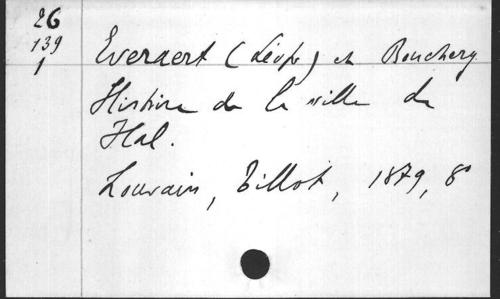 26
139
1
Everaert (Léop) et Bouchery
Histoire de la ville de
Hal.
Louvain, Tillot, 1879, 8°